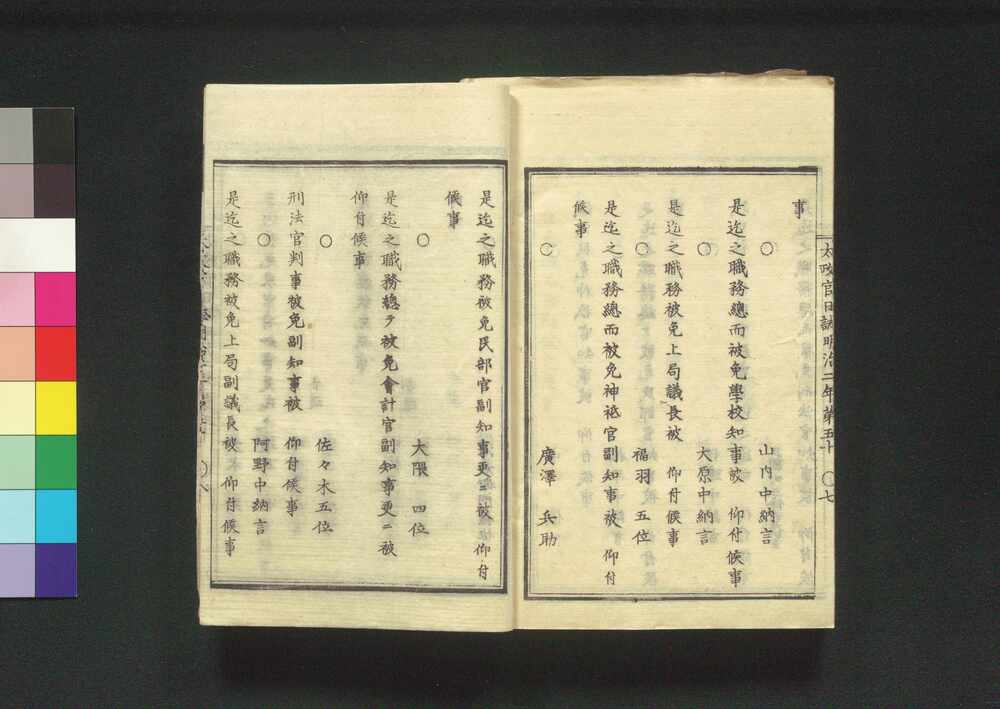 事
○ 山内中納言
是迄之職務總而被免學校知事被 仰付候事
○ 大原中納言
是迄之職務被免上局議長被 仰付候事
○ 福羽 五位
是迄之職務總而被免神祇官副知事被 仰付
候事
○ 廣澤 兵助
太政官日誌明治二年第五十 ○七
是迄之職務被免民部官副知事更ニ被 仰付
候事
○ 大隈 四位
是迄之職務總テ被免會計官副知事更ニ被
仰付候事
○ 佐々木五位
刑法官判事被免副知事被 仰付候事
○ 阿野中納言
是迄之職務被免上局副議長被 仰付候事